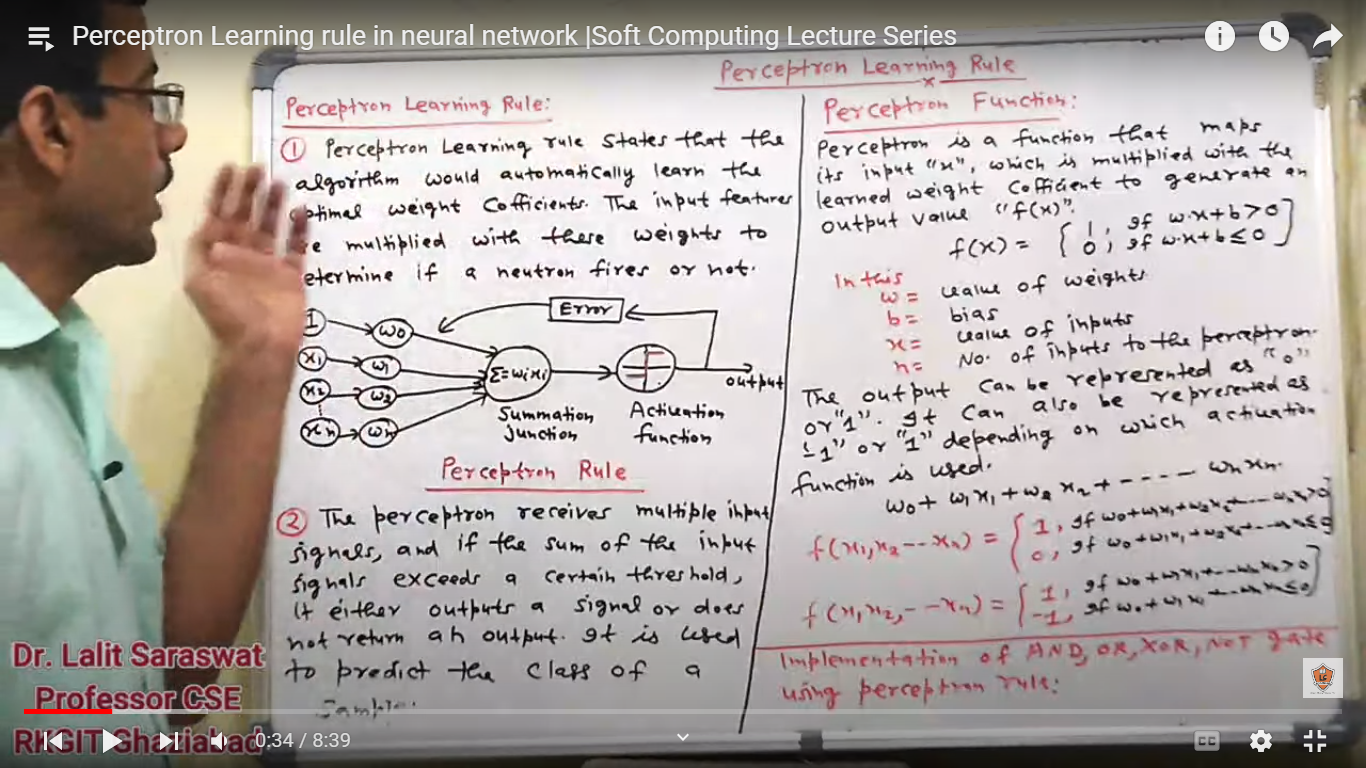 Perceptron Learning rule in neural network |Soft Computing Lecture Series
Perceptron Learning Rule
Perceptron Learning Rule:
① Perceptron Learning rule states that the
algorithm would automatically learn the
optimal weight Cofficients. The input features
multiplied with these weights to
etermine if a neutron fires or not.
Error
1 w0
x1 w1
x2 w2
xn wn
Σ=wixi
output
Summation Junction
Activation function
Perceptron Rule
② The perceptron receives multiple input
signals, and if the sum of the input
signals exceeds a certain threshold,
it either outputs a signal or does
not return an output. It is used
to predict the class of a
Sample.
Perceptron Function:
Perceptron is a function that maps
its input "x", which is multiplied with the
learned weight Cofficient to generate an
output value "f(x)".
f(x) = { 1, if w.x+b>0
0, if w.x+b≤0
In this
w = value of weights
b = bias
x = value of inputs
n = No. of inputs to the perceptron.
The output can be represented as "0"
or "1". It can also be represented as
"-1" or "1" depending on which activation
function is used.
w0+w1x1+w2x2+---- wnxn.
f(x1,x2---xn) = { 1, if w0+w1x1+w2x2+---wnxn>0
0, if w0+w1x1+w2x2+---wnxn≤0
f(x1,x2,--xn) = { 1, if w0+w1x1+---wnxn>0
-1, if w0+w1x1+---wnxn≤0
Implementation of AND, OR, XOR, NOT gate
using perceptron rule:
Dr. Lalit Saraswat
Professor CSE
RKGIT Ghaziabad
0:34 / 8:39
CC